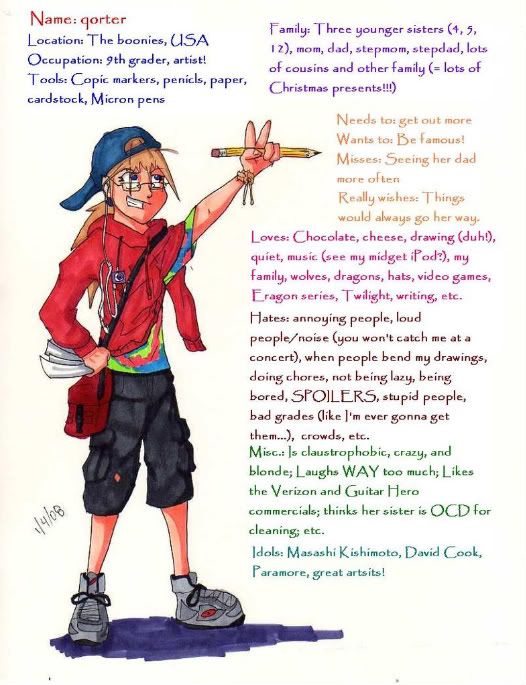 Name: qorter
Location: The boonies, USA
Occupation: 9th grader, artist!
Tools: Copic markers, penicls, paper,
cardstock, Micron pens
Family: Three younger sisters (4, 5,
12), mom, dad, stepmom, stepdad, lots
of cousins and other family (= lots of
Christmas presents!!!)
Needs to: get out more
Wants to: Be famous!
Misses: Seeing her dad
more often
Really wishes: Things
would always go her way.
Loves: Chocolate, cheese, drawing (duh!),
quiet, music (see my midget iPod?), my
family, wolves, dragons, hats, video games,
Eragon series, Twilight, writing, etc.
Hates: annoying people, loud
people/noise (you won't catch me at a
concert), when people bend my drawings,
doing chores, not being lazy, being
bored, SPOILERS, stupid people,
bad grades (like I'm ever gonna get
them...), crowds, etc.
Misc.: Is claustrophobic, crazy, and
blonde; Laughs WAY too much; Likes
the Verizon and Guitar Hero
commercials; thinks her sister is OCD for
cleaning; etc.
Idols: Masashi Kishimoto, David Cook,
Paramore, great artsits!
1/4/08